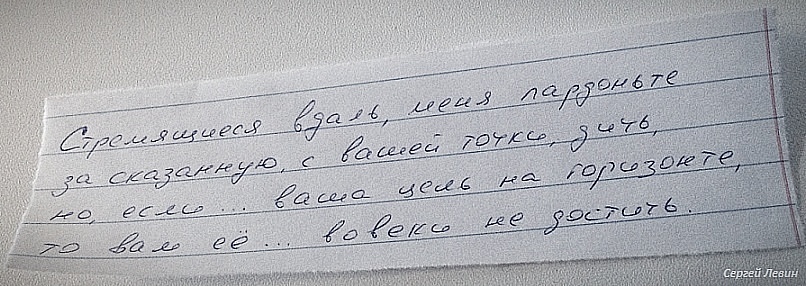 Стремящиеся вдаль, меня пардоньте
за сказанную, с вашей точки, дичь,
но, если... ваша цель на горизонте,
то вам её... вовеки не достичь.
Сергей Левин